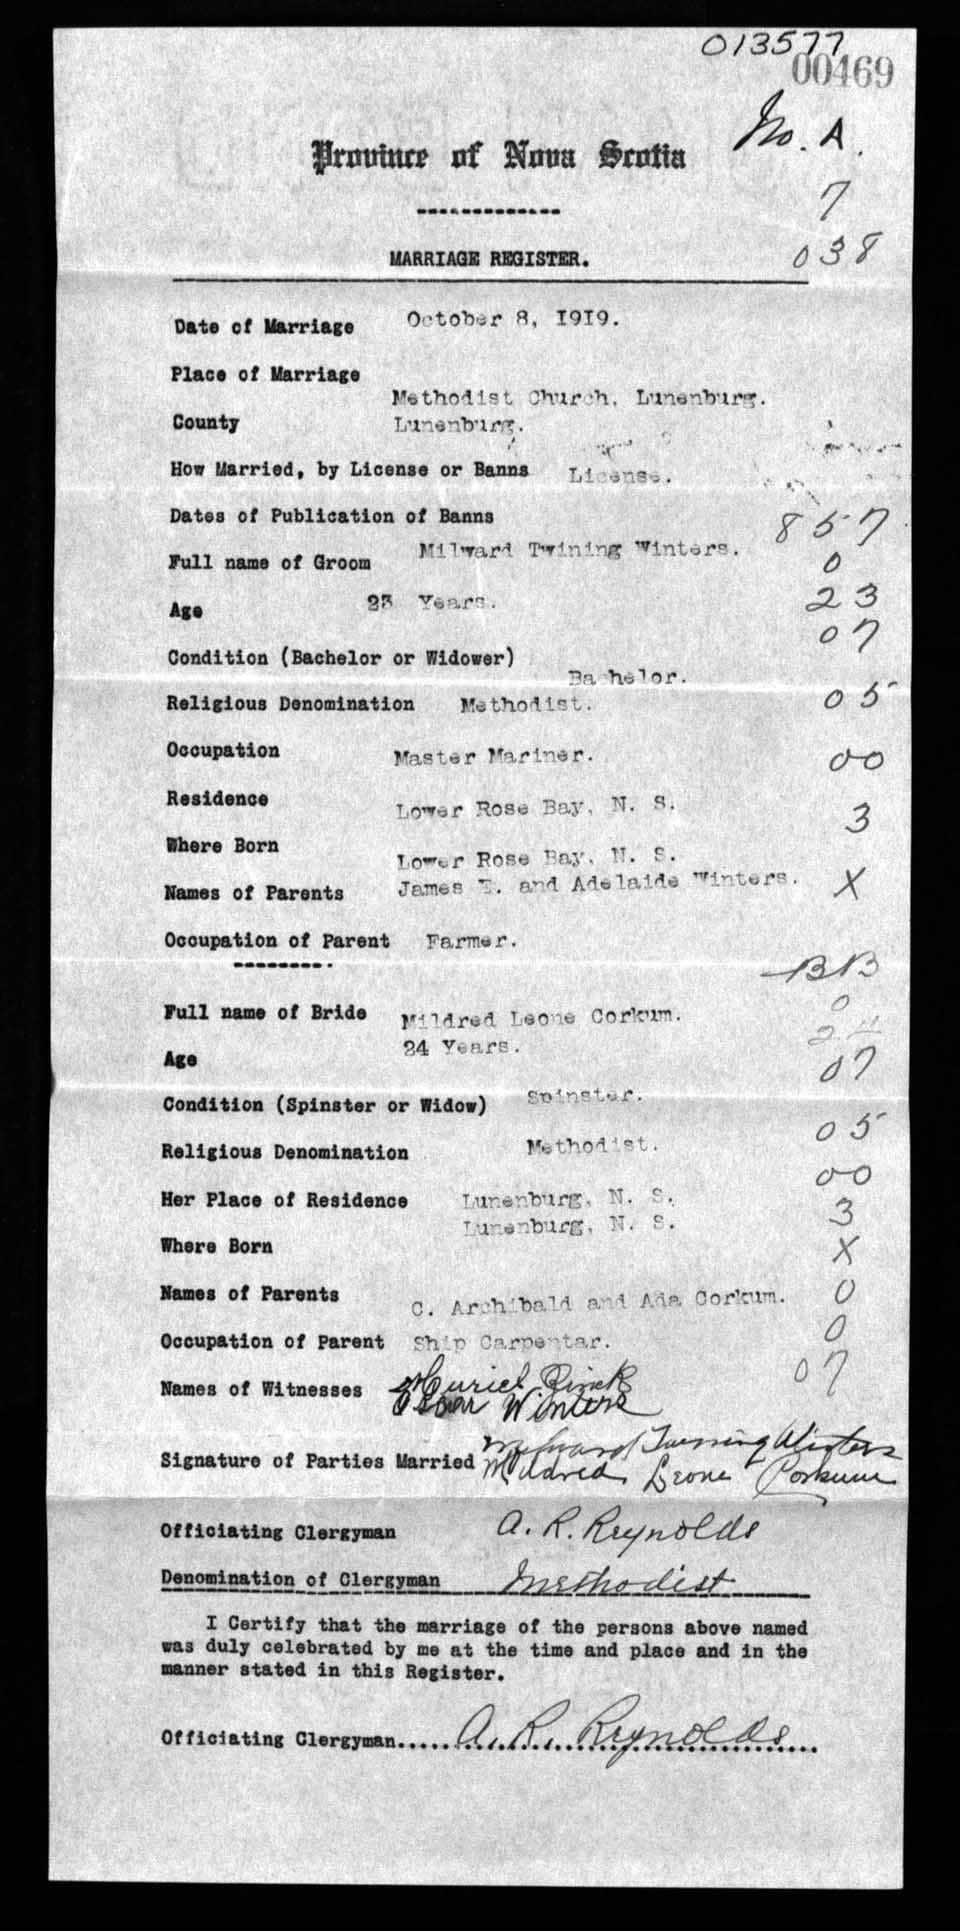 013577
00469
No. A.
Province of Nova Scotia
7
038
MARRIAGE REGISTER.
Date of Marriage October 8, 1919.
Place of Marriage
Methodist Church, Lunenburg.
County Lunenburg.
How Married, by License or Banns License.
Dates of Publication of Banns 857
Full name of Groom Milward Twining Winters. 0
Age 23 Years. 23
07
Condition (Bachelor or Widower) Bachelor.
Religious Denomination Methodist. 05
Occupation Master Mariner. 00
Residence Lower Rose Bay, N. S. 3
Where Born Lower Rose Bay, N. S.
Names of Parents James E. and Adelaide Winters. X
Occupation of Parent Farmer.
BB
0
Full name of Bride Mildred Leone Corkum. 24
Age 24 Years. 07
Condition (Spinster or Widow) Spinster.
Religious Denomination Methodist. 05
00
Her Place of Residence Lunenburg, N. S. 3
Lunenburg, N. S.
Where Born X
Names of Parents C. Archibald and Ada Corkum. 0
Occupation of Parent Ship Carpentar. 0
Names of Witnesses Muriel Zinck 07
Oscar Winters
Milward Twining Winters
Signature of Parties Married Mildred Leone Corkum
Officiating Clergyman A. R. Reynolds
Denomination of Clergyman Methodist
I Certify that the marriage of the persons above named
was duly celebrated by me at the time and place and in the
manner stated in this Register.
Officiating Clergyman..... A. R. Reynolds